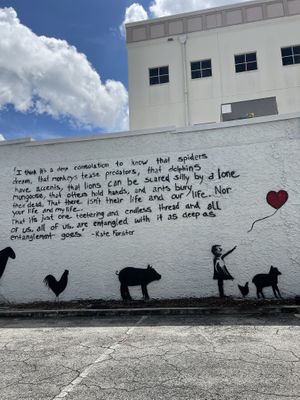 "I think it's a deep consolation to know that spiders
dream, that monkeys tease predators, that dolphins
have accents, that lions can be scared silly by a lone
mongoose, that otters hold hands, and ants bury
their dead. That there isn't their life and our life. Nor
your life and my life.
That it's just one teetering and endless thread and all
of us, all of us, are entangled with it as deep as
entanglement goes." -Kate Forster